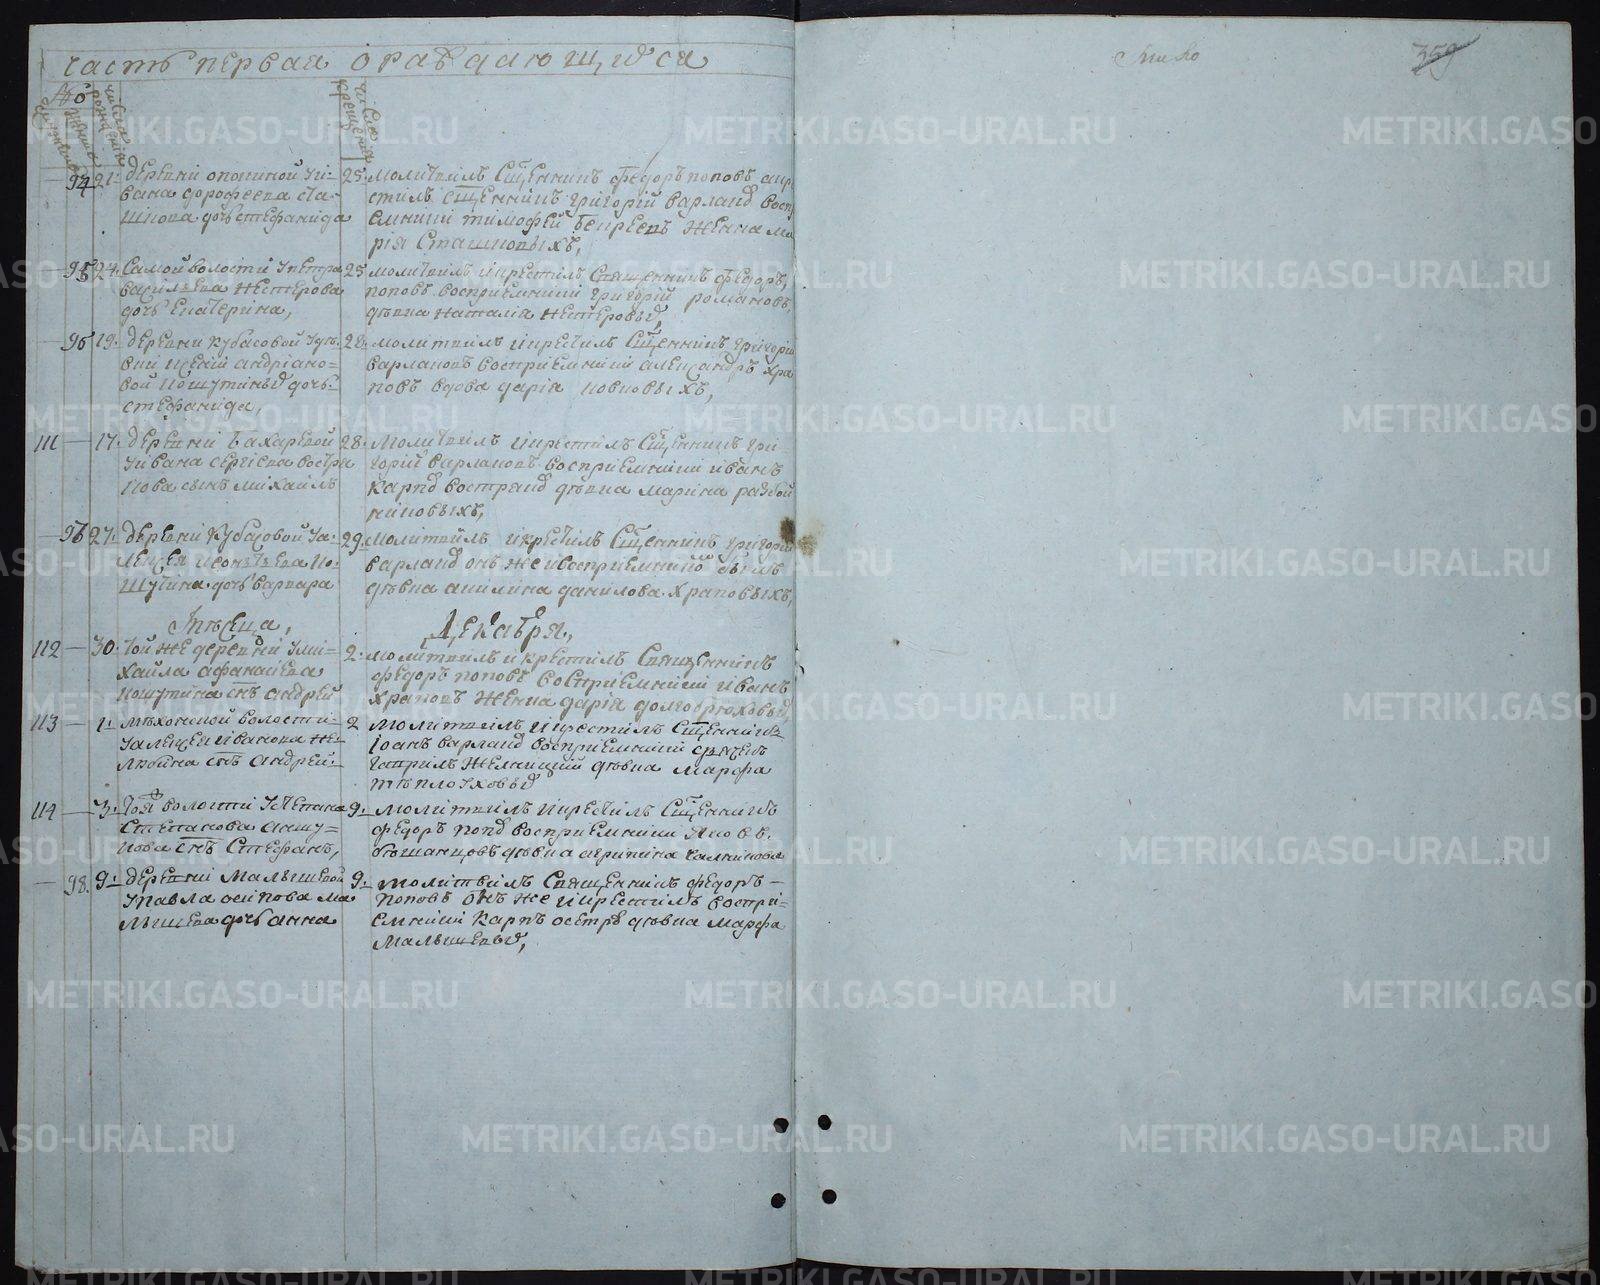 часть первая о раждающихся
№
числа рождения
числа крещения
94 21. деревни опониной уи-
вана дорофеева ста-
шкова дочь стефанида
25. молитвилъ сщенникъ федоръ поповъ
стилъ сщенникъ григорій варлаков
емники тимофей женка ма
рія сташковыхъ,
95 24. самой волости упетра
василева нестерова
дочь екатерина,
25 молитвилъ икрестилъ священникъ федоръ,
поповъ восприемники григорій романовъ,
девка наталія нестеровы,
96 19. деревни кубасовой удѣ-
вки ксеніи андріано-
вой кошутины дочь
стефанида,
28. молитвилъ икрестилъ сщенникъ григорій
варлаковъ восприемники александръ хра
повъ вдова дарія новковыхъ,
111 17. деревни бахаревой
уивана сергіева востра
кова сынъ михаилъ
28. молитвилъ икрестилъ сщенникъ гри-
горій варлаковъ восприемники иванъ
карпов дѣвка марина разбой
никовыхъ,
97 27. деревни кубасовой уа-
лексея леонтьева ко-
шутина дочь варвара
29. молитвилъ икрестилъ сщенникъ григорій
варлаков онъ же ивосприемникомъ былъ
дѣвка акилина данилова храповыхъ,
мѣсяца,
декабря,
112 30. той же деревни уми-
хайла афанасіева
кошутина снъ андрей
2. молитвилъ икрестилъ священникъ
федоръ поповъ восприемники иванъ
храповъ женка дарія долгобрюховы,
113 1. мехонской волости
уалексея иванова не-
любина снъ андрей
2 молитвилъ икрестилъ сщенникъ
іоанъ варлаков восприемники
гаврилъ дѣвка марфа
теплоуховы
114 3. той волости устепана
степанова
кова снъ стефанъ,
9. молитвилъ икрестилъ сщенникъ
федоръ поповъ восприемники яковъ
дѣвка агрипина калинкова
98. 9. деревни малышевой
упавла осипова ма
лышева дочь анна
9. молитвилъ священникъ федоръ
поповъ онъ же икрестилъ воспри-
емники карпъ дѣвка марфа
малышевы,
359
METRIKI.GASO-URAL.RU